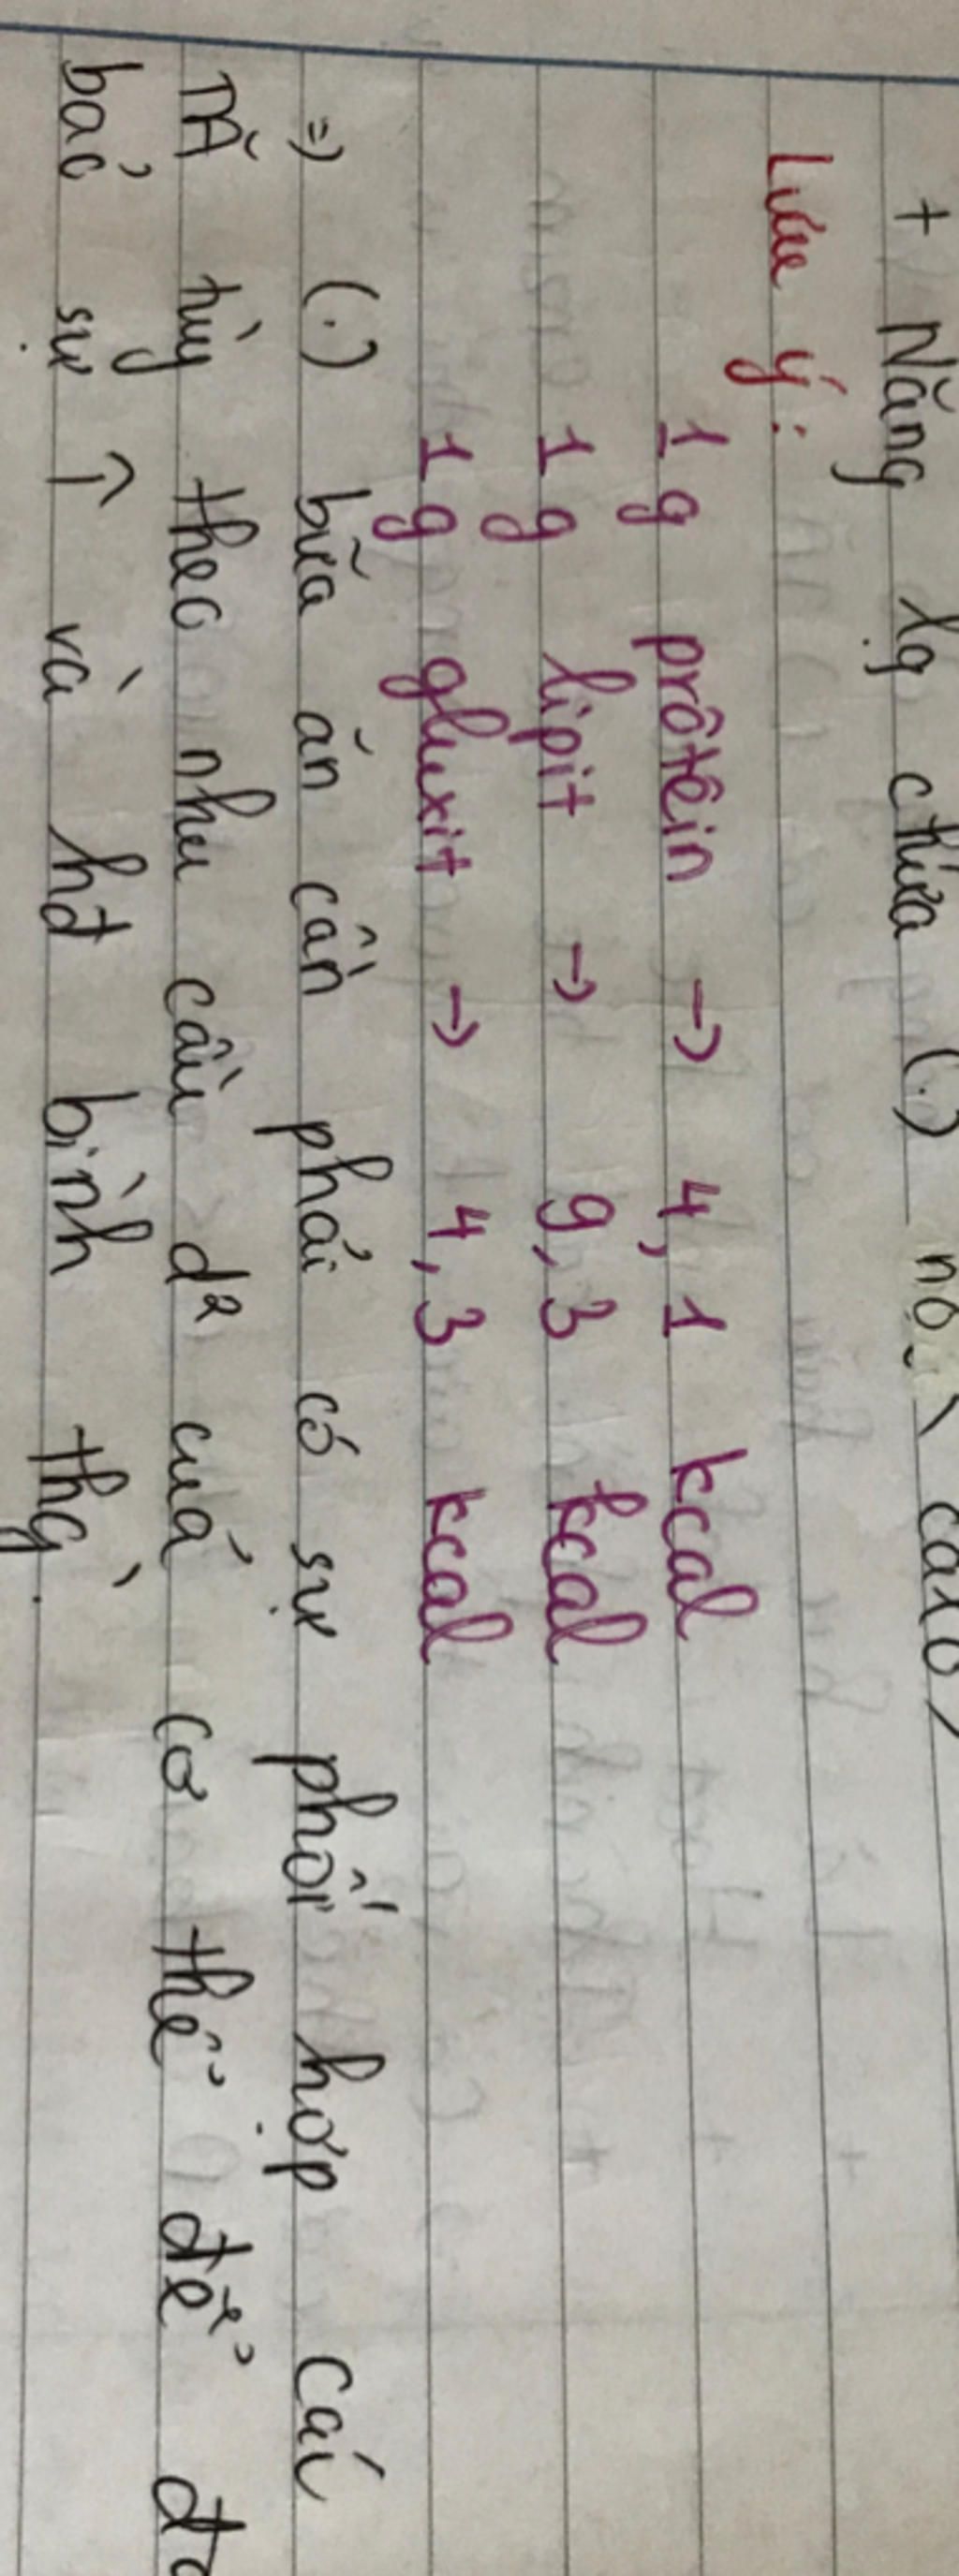 + Năng lg chứa (.) nó ( calo )
Lưu ý:
1g prôtêin → 4,1 kcal
1g lipit → 9,3 kcal
1g gluxit → 4,3 kcal
=) (.) bữa ăn cần phải có sự phối hợp các
TĂ tùy theo nhu cầu d² của cơ thể để đả
bảo sự ↑ và hđ bình thg`.